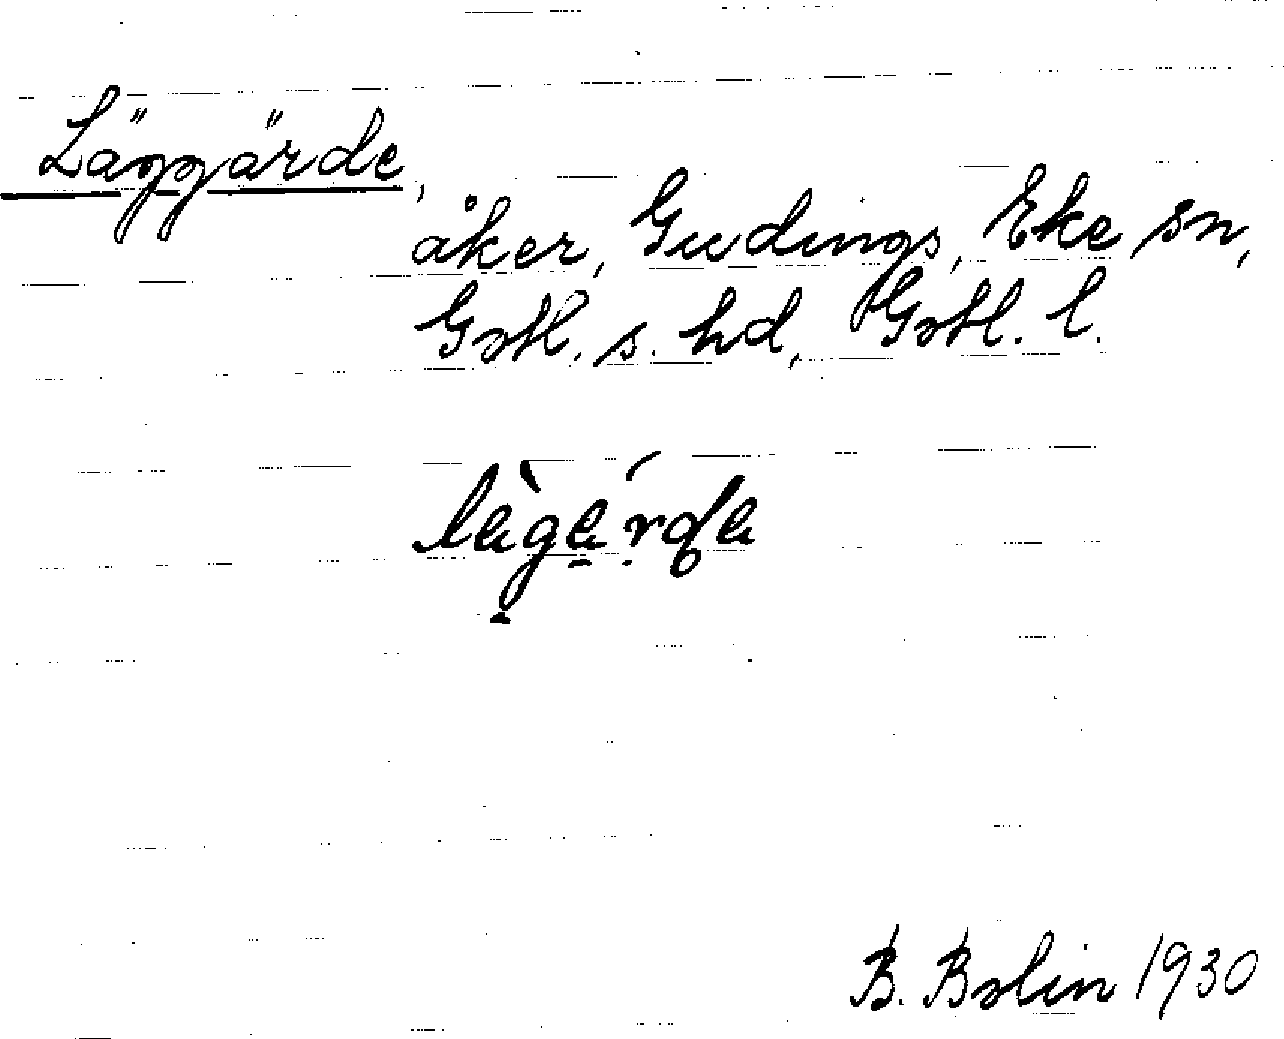 Läggärde,
åker, Gudings, Eke sn,
Gotl. s. hd, Gotl. l.
B. Bolin 1930